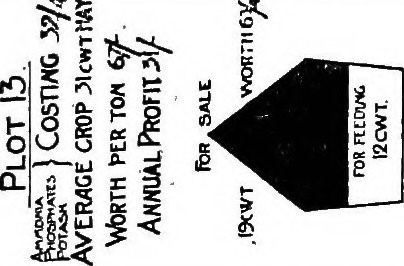 PLOT 13.
AMMONIA
PHOSPHATES
POTASH
} COSTING 32/4
AVERAGE CROP 31CWT HAY
WORTH PER TON 67/-
ANNUAL PROFIT 31/-
FOR SALE
19CWT
WORTH 63/4
FOR FEEDING
12CWT.